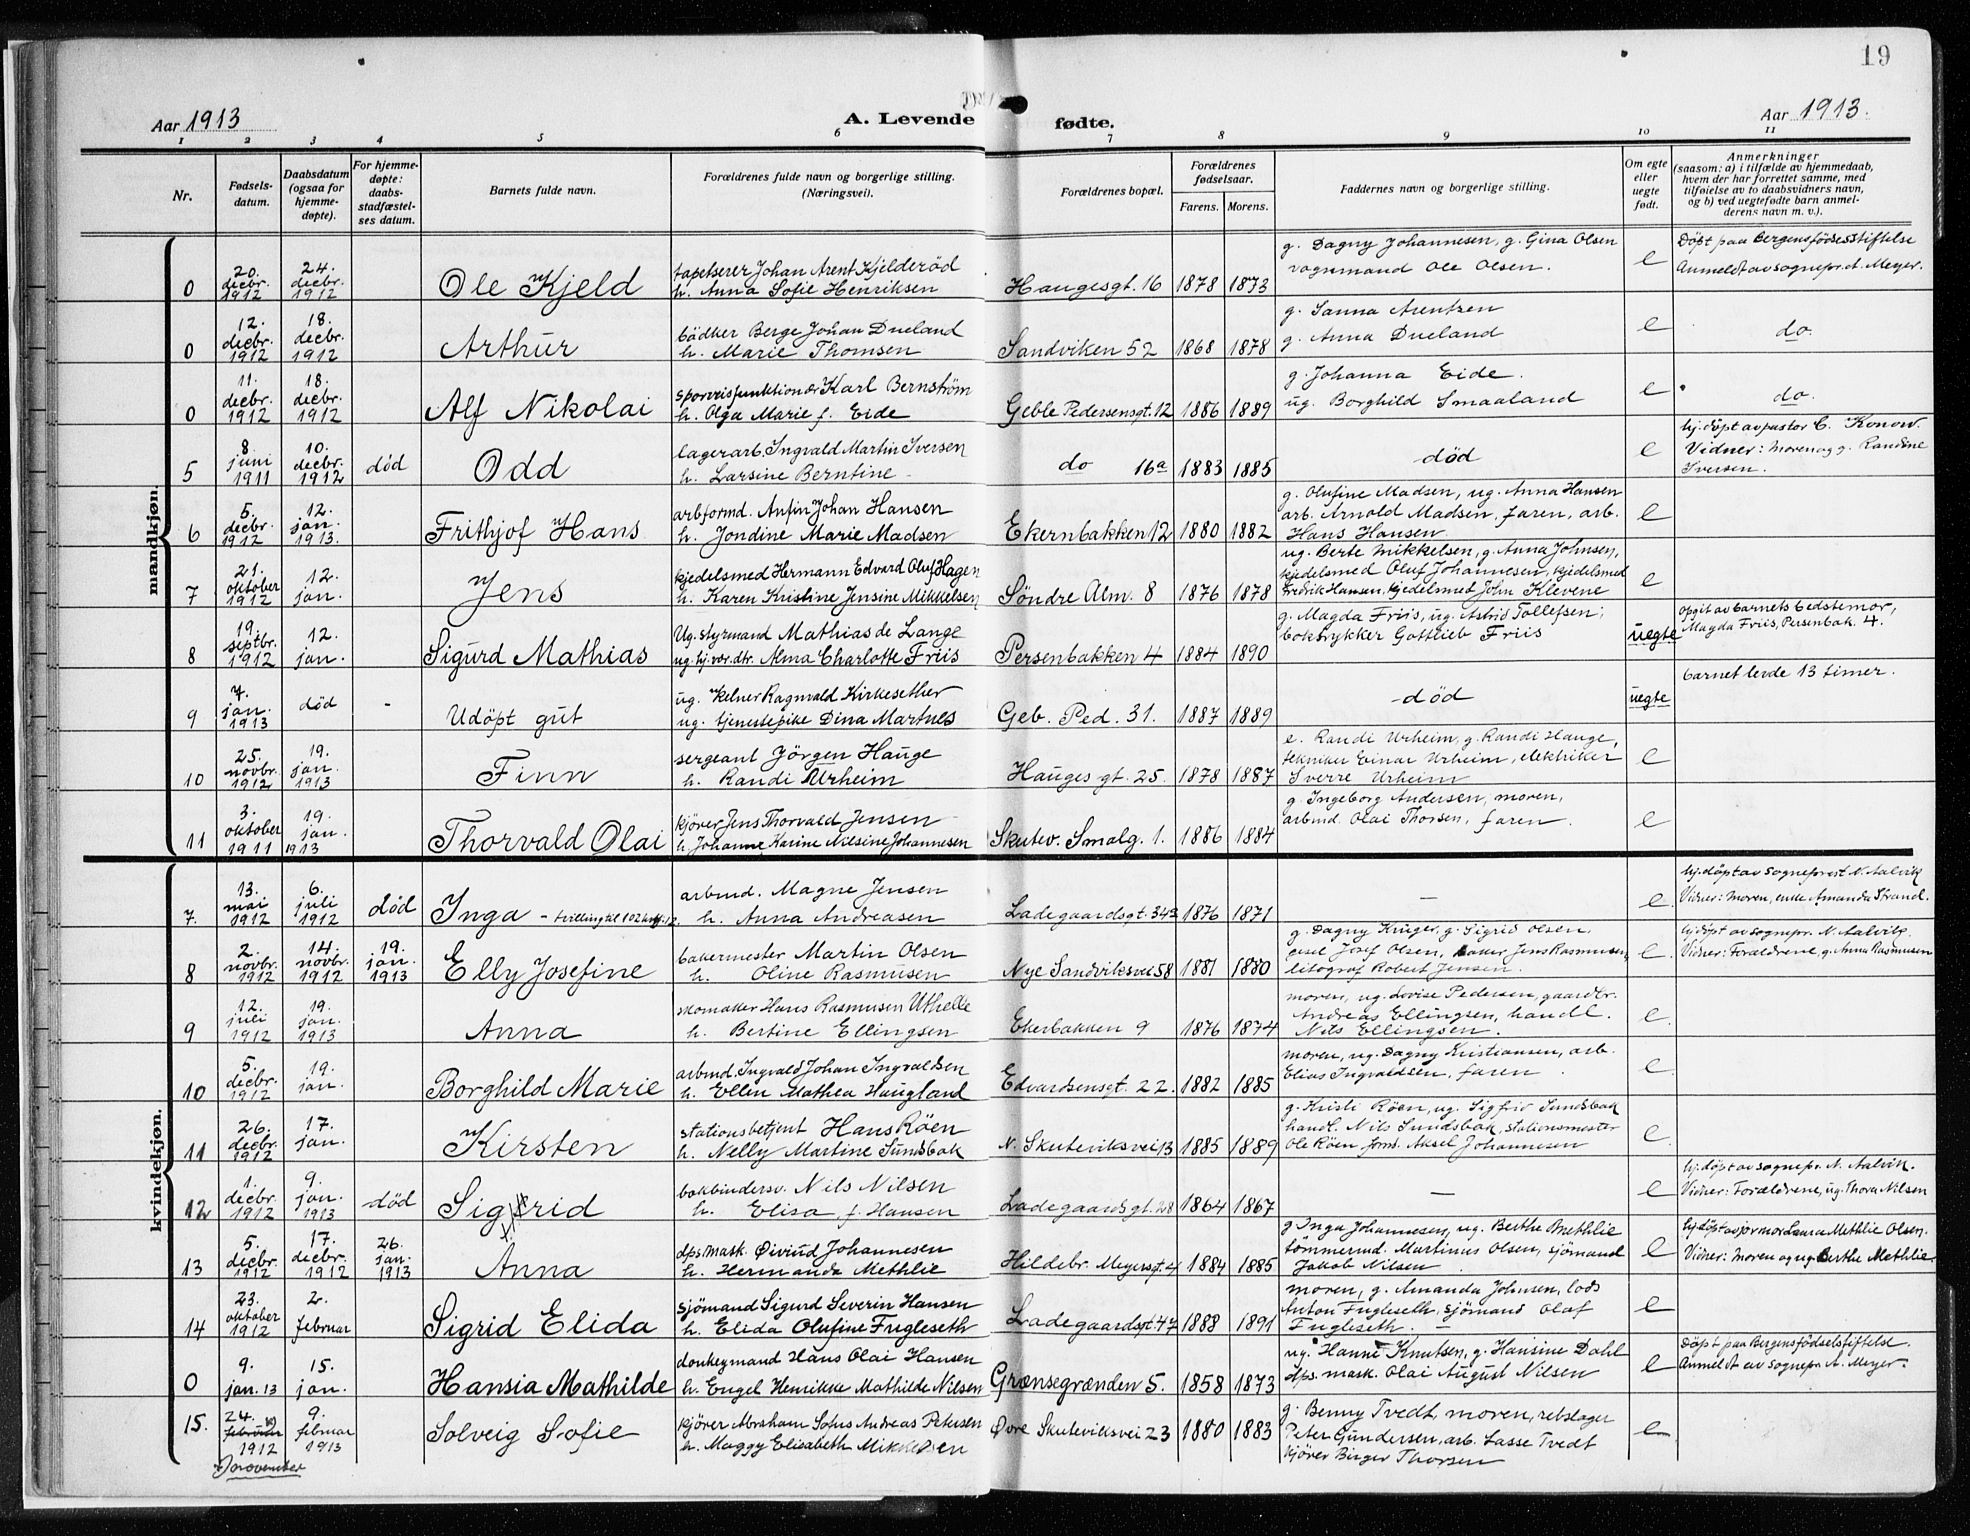 19
Aar 1913
A. Levende fødte.
Aar 1913.
1 2 3 4 5 6 7 8 9 10 11
Nr.
Fødsels-
datum.
Daabsdatum
(ogsaa for
hjemme-
døpte).
For hjemme-
døpte:
daabs-
stadfæstel-
ses datum.
Barnets fulde navn.
Forældrenes fulde navn og borgerlige stilling.
(Næringsvei).
Forældrenes bopæl.
Forældrenes
fødselsaar.
Farens. Morens.
Faddernes navn og borgerlige stilling.
Om egte
eller
uegte
født.
Anmerkninger
(saasom: a) i tilfælde av hjemmedaab,
hvem der har forrettet samme, med
tilføielse av to daabsvidners navn,
og b) ved uegtefødte barn anmel-
derens navn m. v.).
mandkjøn.
0
20.
decbr.
1912
24.
decbr.
1912
Ole Kjeld
tapetserer Johan Arent Kjelderød
h. Anna Sofie Henriksen
Haugesgt. 16
1878
1873
g. Dagny Johannesen, g. Gina Olsen
vognmand Ole Olsen.
e
Döpt paa Bergens födselsstiftelse
Anmeldt av sognepr. A. Meyer.
0
12.
decbr.
1912
18.
decbr.
1912
Arthur
bödker Berge Johan Dueland
h. Marie Thomsen
Sandviken 52
1868
1878
g. Sanna Arentzen
g. Anna Dueland
e
do.
0
11.
decbr.
1912
18.
decbr.
1912
Alf Nikolai
sporveisfunktionær Karl Bernström
h. Olga Marie f. Eide
Geble Pedersensgt. 12
1886
1889
g. Johanna Eide.
ug. Borghild Smaaland
e
do.
5
8.
juni
1911
10.
decbr.
1912
död
Odd
lagerarb. Ingvald Martin Iversen
h. Larsine Berntine
do 16a
1883
1885
död
e
hj.döpt av pastor C. Konow.
Vidner: moren og g. Randine
Iversen.
6
5.
decbr.
1912
12.
jan.
1913.
Frithjof Hans
arbformd. Anfin Johan Hansen
h. Jondine Marie Madsen
Ekernbakken 12
1880
1882
g. Olufine Madsen, ug. Anna Hansen
arb. Arnold Madsen, faren, arb.
Hans Hansen.
e
7
21.
oktober
1912
12.
jan.
Jens
kjedelsmed Hermann Edvard Oluf Hagen
h. Karen Kristine Jensine Mikkelsen
Söndre Alm. 8
1876
1878
ug. Berte Mikkelsen, g. Anna Johnsen,
kjedelsmed Oluf Johannesen, kjedelsmed
Fredrik Hansen, kjedelsmed John Klevene
e
8
19.
septbr.
1912
12.
jan.
Sigurd Mathias
Ug. styrmand Mathias de Lange
ug. hj.vor. dtr. Alma Charlotte Friis
Persenbakken 4
1884
1890
g. Magda Friis, ug. Astrid Tollefsen;
boktrykker Gottlieb Friis
uegte
opgit av barnets bedstemor,
Magda Friis, Persenbak. 4.
9
7.
jan.
1913
död
-
Udöpt gut
ug. Kelner Ragnvald Kirkesether
ug. tjenestepike Dina Martnes
Geb. Ped. 31.
1887
1889
död
uegte
barnet levde 13 timer.
10
25.
novbr.
1912
19.
jan.
1913
Finn
sergeant Jörgen Hauge
h. Randi Urheim
Hauges gt. 25.
1878
1887
e. Randi Urheim, g. Randi Hauge,
tekniker Einar Urheim, elektriker
Sverre Urheim
e
11
3.
oktober
1911
19.
jan.
1913
Thorvald Olai
kjörer Jens Thorvald Jensen
h. Johanne Karine Nilsine Johannesen
Skutev. Smalg. 1.
1886
1884
g. Ingeborg Andersen, moren,
arbmd. Olai Thorsen, faren.
e
kvindekjøn.
7.
13.
mai
1912
6.
juli
1912
död
Inga - tvilling til 102
arbmd. Magne Jensen
h. Anna Andreasen
Ladegaardsgt. 34a
1876
1871
—
e.
hj.döpt av sogneprest N. Aalvik
Vidner: Moren, enke Amanda Strand.
8
2.
novbr.
1912
14.
novbr.
1912
19.
jan.
1913
Elly Josefine
bakermester Martin Olsen
h. Oline Rasmusen
Nye Sandviksvei 58
1881
1880
g. Dagny Krüger, g. Sigrid Olsen,
Josef Olsen, baker Jens Rasmusen,
litograf Robert Jensen.
e.
hj.döpt av sognepr. N. Aalvik.
Vidner: Forældrene, g. Anna Rasmusen
9
12.
juli
1912
19.
jan.
1913
Anna
skomaker Hans Rasmusen Uthelle
h. Bertine Ellingsen
Ekerbakken 9
1876
1874
moren, ug. Lovise Pedersen, gaardbr.
Andreas Ellingsen, handl.
Nils Ellingsen.
e.
10
5.
decbr.
1912
19.
jan.
Borghild Marie
arbmd. Ingvald Johan Ingvaldsen
h. Ellen Mathea Haugland
Edvardsensgt. 22.
1882
1885
moren, ug. Dagny Kristiansen, arb.
Elias Ingvaldsen, faren.
e.
11
26.
decbr.
1912
17.
jan.
Kirsten
stationsbetjent Hans Röen
h. Nelly Martine Sundsbak
N. Skuteviksvei 13
1885
1889
g. Kristi Röen, ug. Sigfrid Sundsbak
handl. Nils Sundsbak, stationsmester
Ole Röen, Aksel Johannesen
e.
12
1.
decbr.
1912
9.
jan.
1913
död
Sigfrid
bokbindersv. Nils Nilsen
h. Elisa f. Hansen
Ladegaardsgt. 28
1864
1867
—
e
hj.döpt av sognepr. N. Aalvik.
Vidner: Forældrene, ug. Thora Nilsen
13
5.
decbr.
1912
17.
decbr.
1912
26.
jan.
1913
Anna
dps.mask. Øivind Johannesen
h. Hermanda Methlie
Hildebr. Meyersgt. 4
1884
1885
g. Inga Johannesen, ug. Berthe Methlie
tömmermd. Martinus Olsen, sjömand
Jakob Nilsen
e
hj.döpt av jormor Laura Methlie Olsen.
Vidner: Moren og ug. Berthe Methlie.
14
23.
oktober
1912
2.
februar
Sigrid Elida
sjömand Sigurd Severin Hansen
h. Elida Olufine Fugleseth
Ladegaardsgt. 47
1888
1891
moren, g. Amanda Johnsen, lods
Anton Fugleseth, sjömand Olaf
Fugleseth. —
e
0
9.
jan. 13
15.
jan.
Hansia Mathilde
donkeymand Hans Olai Hansen
h. Engel Henrikke Mathilde Nilsen
Grænsegrænden 5.
1858
1873
ug. Hanne Knutsen, g. Hansine Dahl
dps. mask. Olai August Nilsen
e
Döpt paa Bergens födselsstiftelse.
Anmeldt av sognepr. A. Meyer.
15.
24.
februar
1912
november
9.
februar
1913
Solveig Sofie
kjörer Abraham Sofus Andreas Petersen
h. Maggy Elisabeth Mikkelsen
Øvre Skuteviksvei 23
1880
1883
g. Benny Tvedt, moren, rebslager
Peter Gundersen, arb. Lasse Tvedt
kjörer Birger Thorsen
e